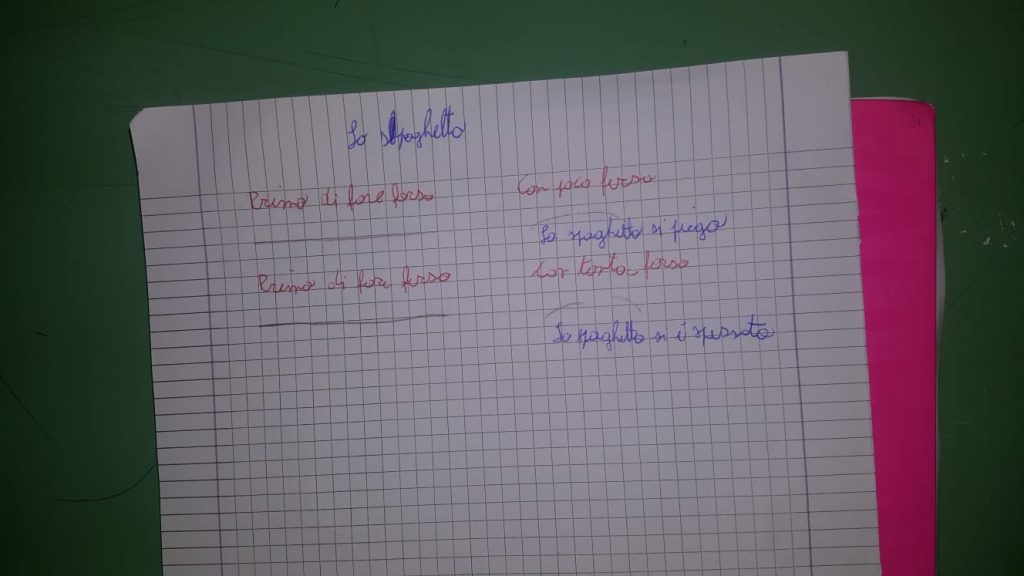 Lo spaghetto
Prima di fare forza
Con poca forza
Lo spaghetto si piega
Prima di fare forza
Con tanta forza
Lo spaghetto si è spezzato